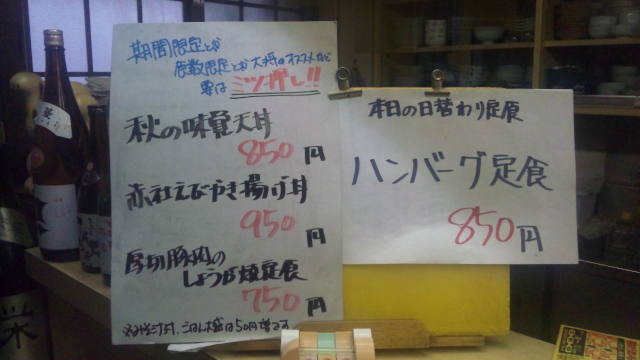 期間限定とか
夜数限定とか大将のオススメなど
要は
ミツ押し!!
秋の味覚天丼
850円
赤社えびかき揚げ丼
950円
厚切豚肉の
しょうが焼定食
750円
ごはん大盛は50円増です
本日の日替わり定食
ハンバーグ定食
850円